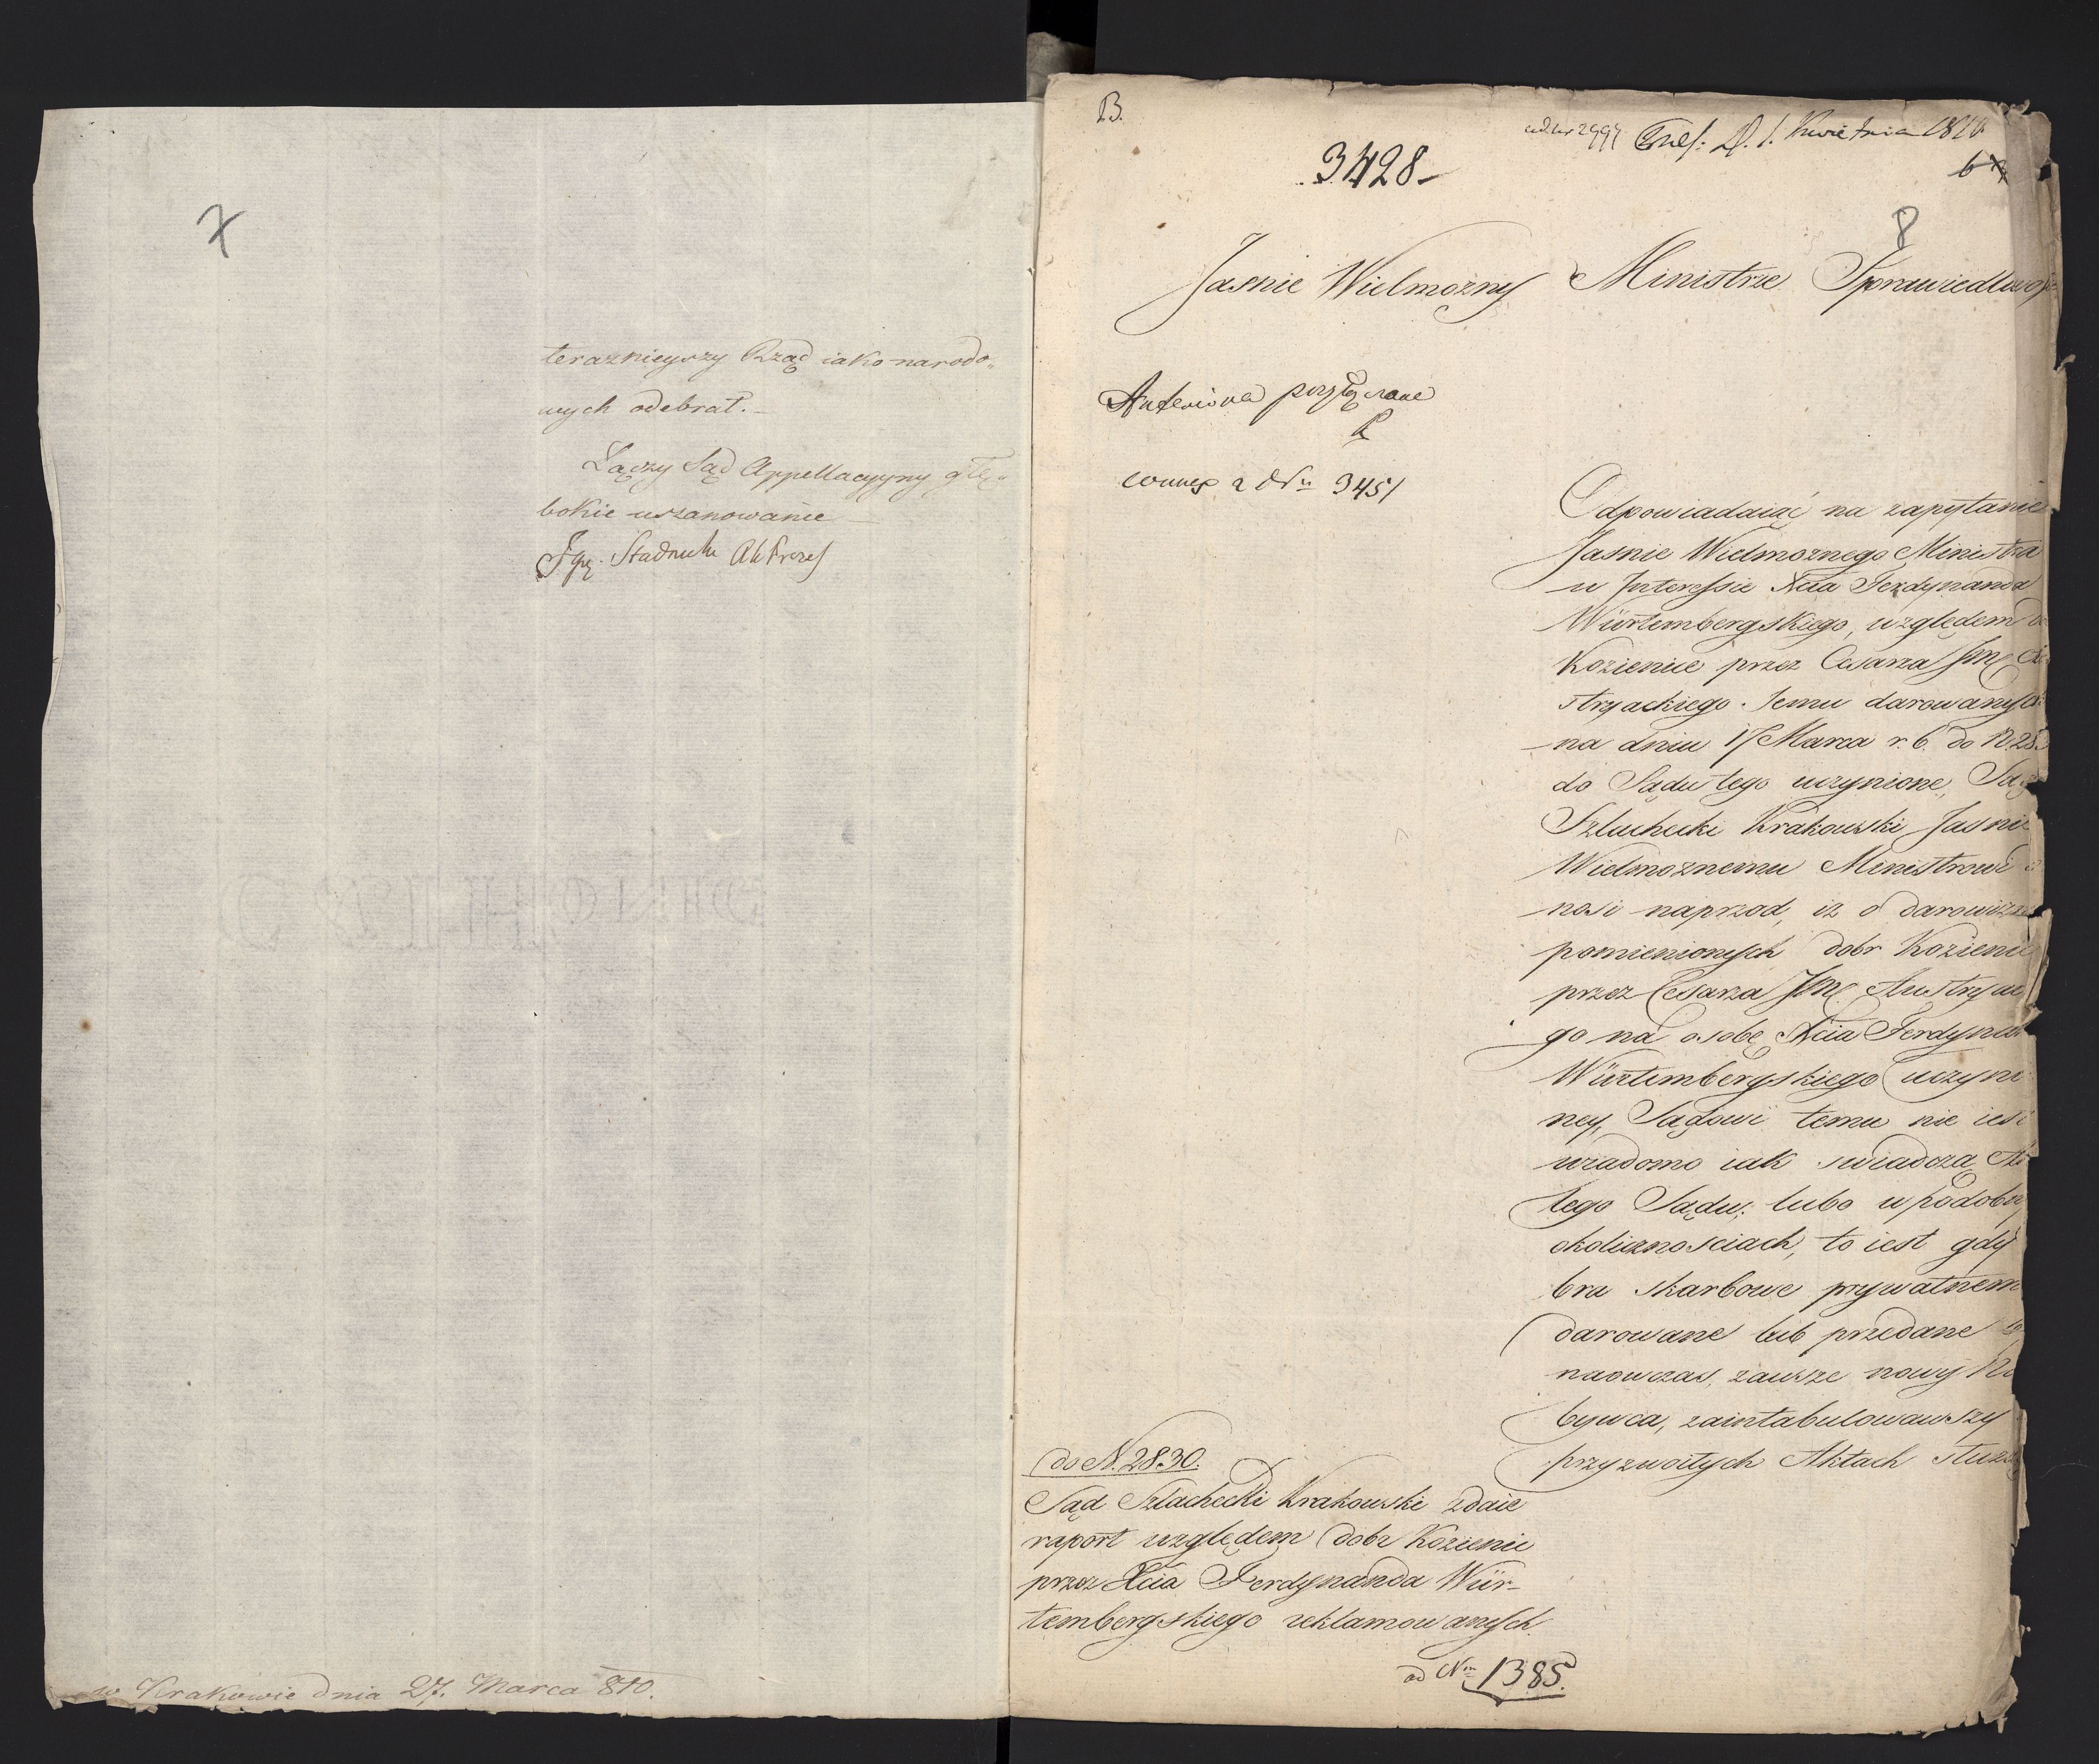 7
teraznieyszy Rząd iako narodo„
wych odebrał.
Łączy Sąd Appellacyyny głę„
bokie uszanowanie
w Krakowie dnia 27. Marca 810.
B.
3428
Pres: D. 1. Kwietnia 1810
8
Jasnie Wielmożny Ministrze
connex a d Nr 3451
Odpowiadaiąc na zapytanie
Jasnie Wielmoznego Ministra
w Interessie Xcia Ferdynanda
Würtembergskiego, względem
Kozienice przez Cesarza Jm
stryackiego Jemu darowanych
na dniu 17 Marca r. b. do N. 28
do Sądu tego uczynione, Są
Szlachecki Krakowski Jasnie
Wielmoznemu Ministrowi
nosi naprzod, iz o darowizn
pomienionych dobr Kozienic
przez Cesarza Jm Austryac
go na osobę Xcia Ferdynan
Würtembergskiego uczynio
ney, Sądowi temu nie iest
wiadomo iak swiadczą Ak
tego Sądu; lubo w podobn
okolicznosciach, to iest gdy
bra skarbowe prywatnem
darowane lub przedane
naowczas, zawsze nowy Na
bywca, zaintabulowawszy
przyzwoitych Aktach służ
do N. 2830.
Sąd Szlachecki Krakowski zdaie
raport względem dobr Kozienic
przez Xcia Ferdynanda Wür-
tembergskiego reklamowanych.
ad Nm 1385.